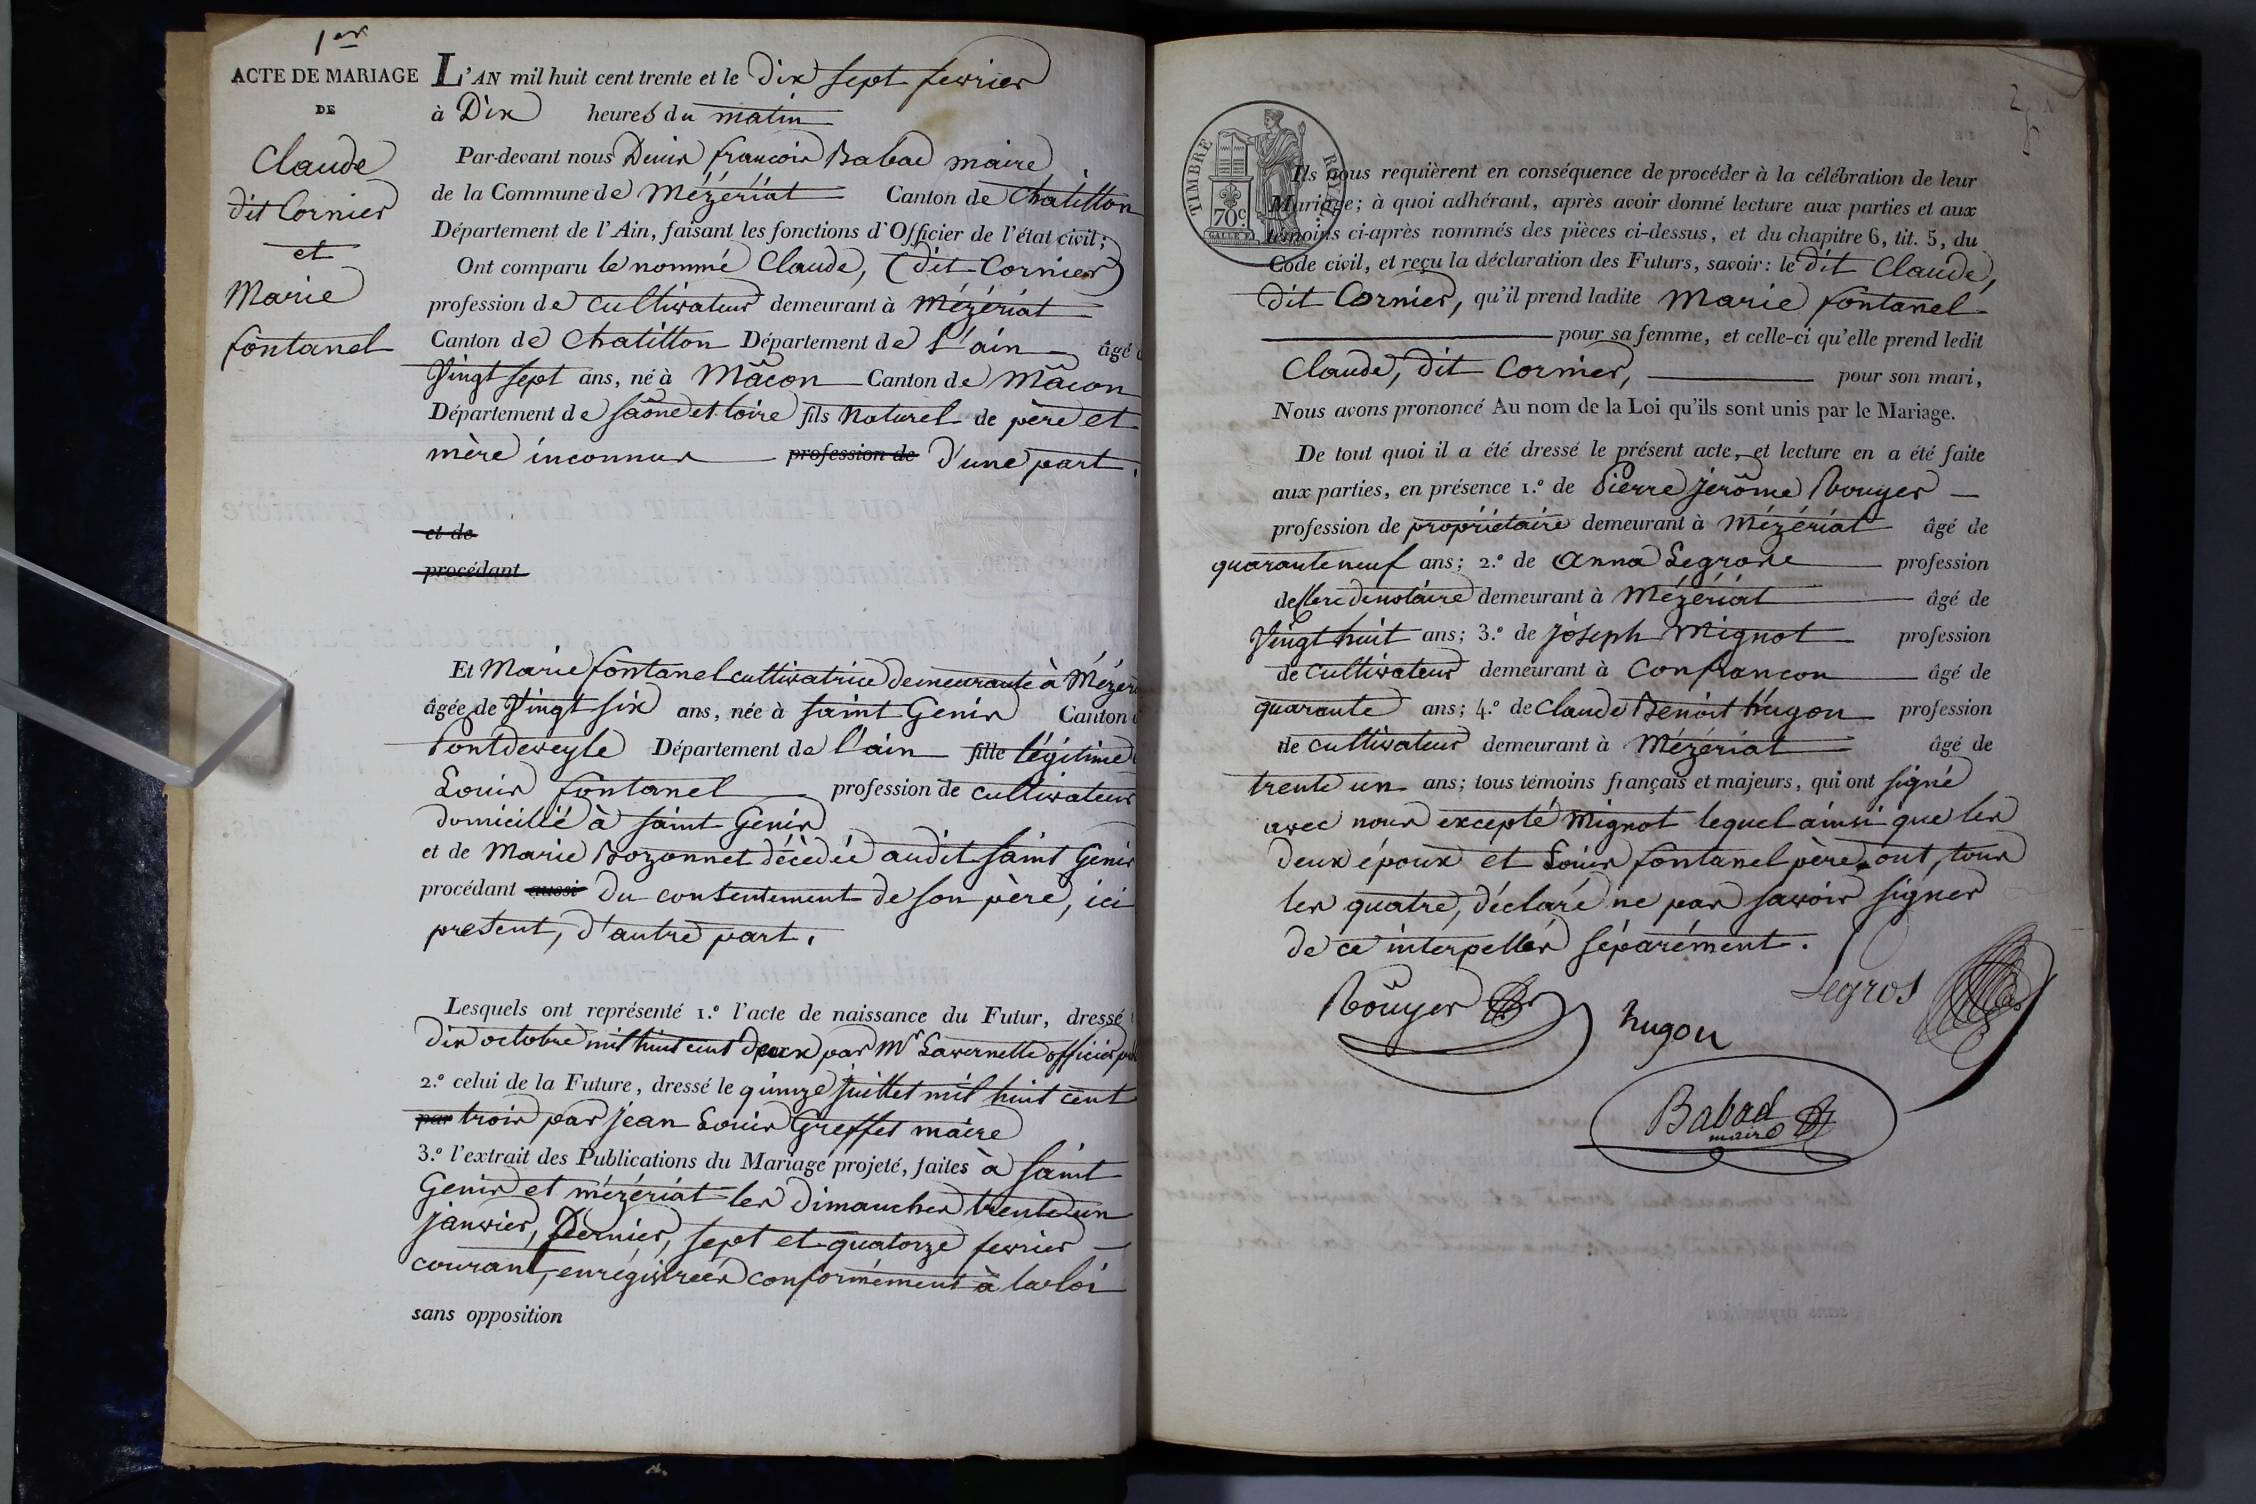 1er
ACTE DE MARIAGE
DE
Claude
dit Cornier
et
Marie
fontanel
L'AN mil huit cent trente et le dix sept fevrier
à Dix heures du matin
Par-devant nous Denis françois Babad maire
de la Commune de Mézériat Canton de Chatillon
Département de l'Ain, faisant les fonctions d'Officier de l'état civil;
Ont comparu le nommé Claude, (dit Cornier)
profession de cultivateur demeurant à Mézériat
Canton de Chatillon Département de L'ain âgé
Vingt sept ans, né à Mâcon Canton de Mâcon
Département de Saône et loire fils Naturel de père et
mère inconnus profession de d'une part.
et de
procédant
Et Marie fontanel cultivatrice demeurante à Mézér
âgée de Vingt six ans, née à saint Genis Canton
Pontdeveyle Département de l'ain fille légitime
Louis fontanel profession de cultivateur
domicilié à saint Genis
et de Marie Bozonnet décédée audit saint Genis
procédant aussi du consentement de son père, ici
present, d'autre part.
Lesquels ont représenté 1.° l'acte de naissance du Futur, dressé
dix octobre mil huit cent deux par Mr Lavernette officier
2.° celui de la Future, dressé le quinze juillet mil huit cent
par trois par jean Louis Greffet maire
3.° l'extrait des Publications du Mariage projeté, faites à saint
Genis et mézériat les dimanches trente un
janvier, Dernier, sept et quatorze fevrier
courant, enrégistreés conformément à la loi
sans opposition
2
TIMBRE ROYAL
70c
Ils nous requièrent en conséquence de procéder à la célébration de leur
Mariage; à quoi adhérant, après avoir donné lecture aux parties et aux
témoins ci-après nommés des pièces ci-dessus, et du chapitre 6, tit. 5, du
Code civil, et reçu la déclaration des Futurs, savoir: le dit Claude,
dit Cornier, qu'il prend ladite Marie fontanel
pour sa femme, et celle-ci qu'elle prend ledit
Claude, dit Cornier, pour son mari,
Nous avons prononcé Au nom de la Loi qu'ils sont unis par le Mariage.
De tout quoi il a été dressé le présent acte, et lecture en a été faite
aux parties, en présence 1.° de Pierre jérôme Rouyer
profession de propriétaire demeurant à Mézériat âgé de
quarante neuf ans; 2.° de Anna Legros profession
de Clerc de notaire demeurant à Mézériat âgé de
Vingt huit ans; 3.° de joseph Mignot profession
de cultivateur demeurant à Confrancon âgé de
quarante ans; 4.° de Claude Benoit hugon profession
de cultivateur demeurant à Mézériat âgé de
trente un ans; tous témoins français et majeurs, qui ont signé
avec nous excepté Mignot lequel ainsi que les
deux époux et Louis fontanel père ont, tous
les quatre, déclaré ne pas savoir signer
de ce interpellés séparément.
Rouyer
hugon
Legros
Babad
maire